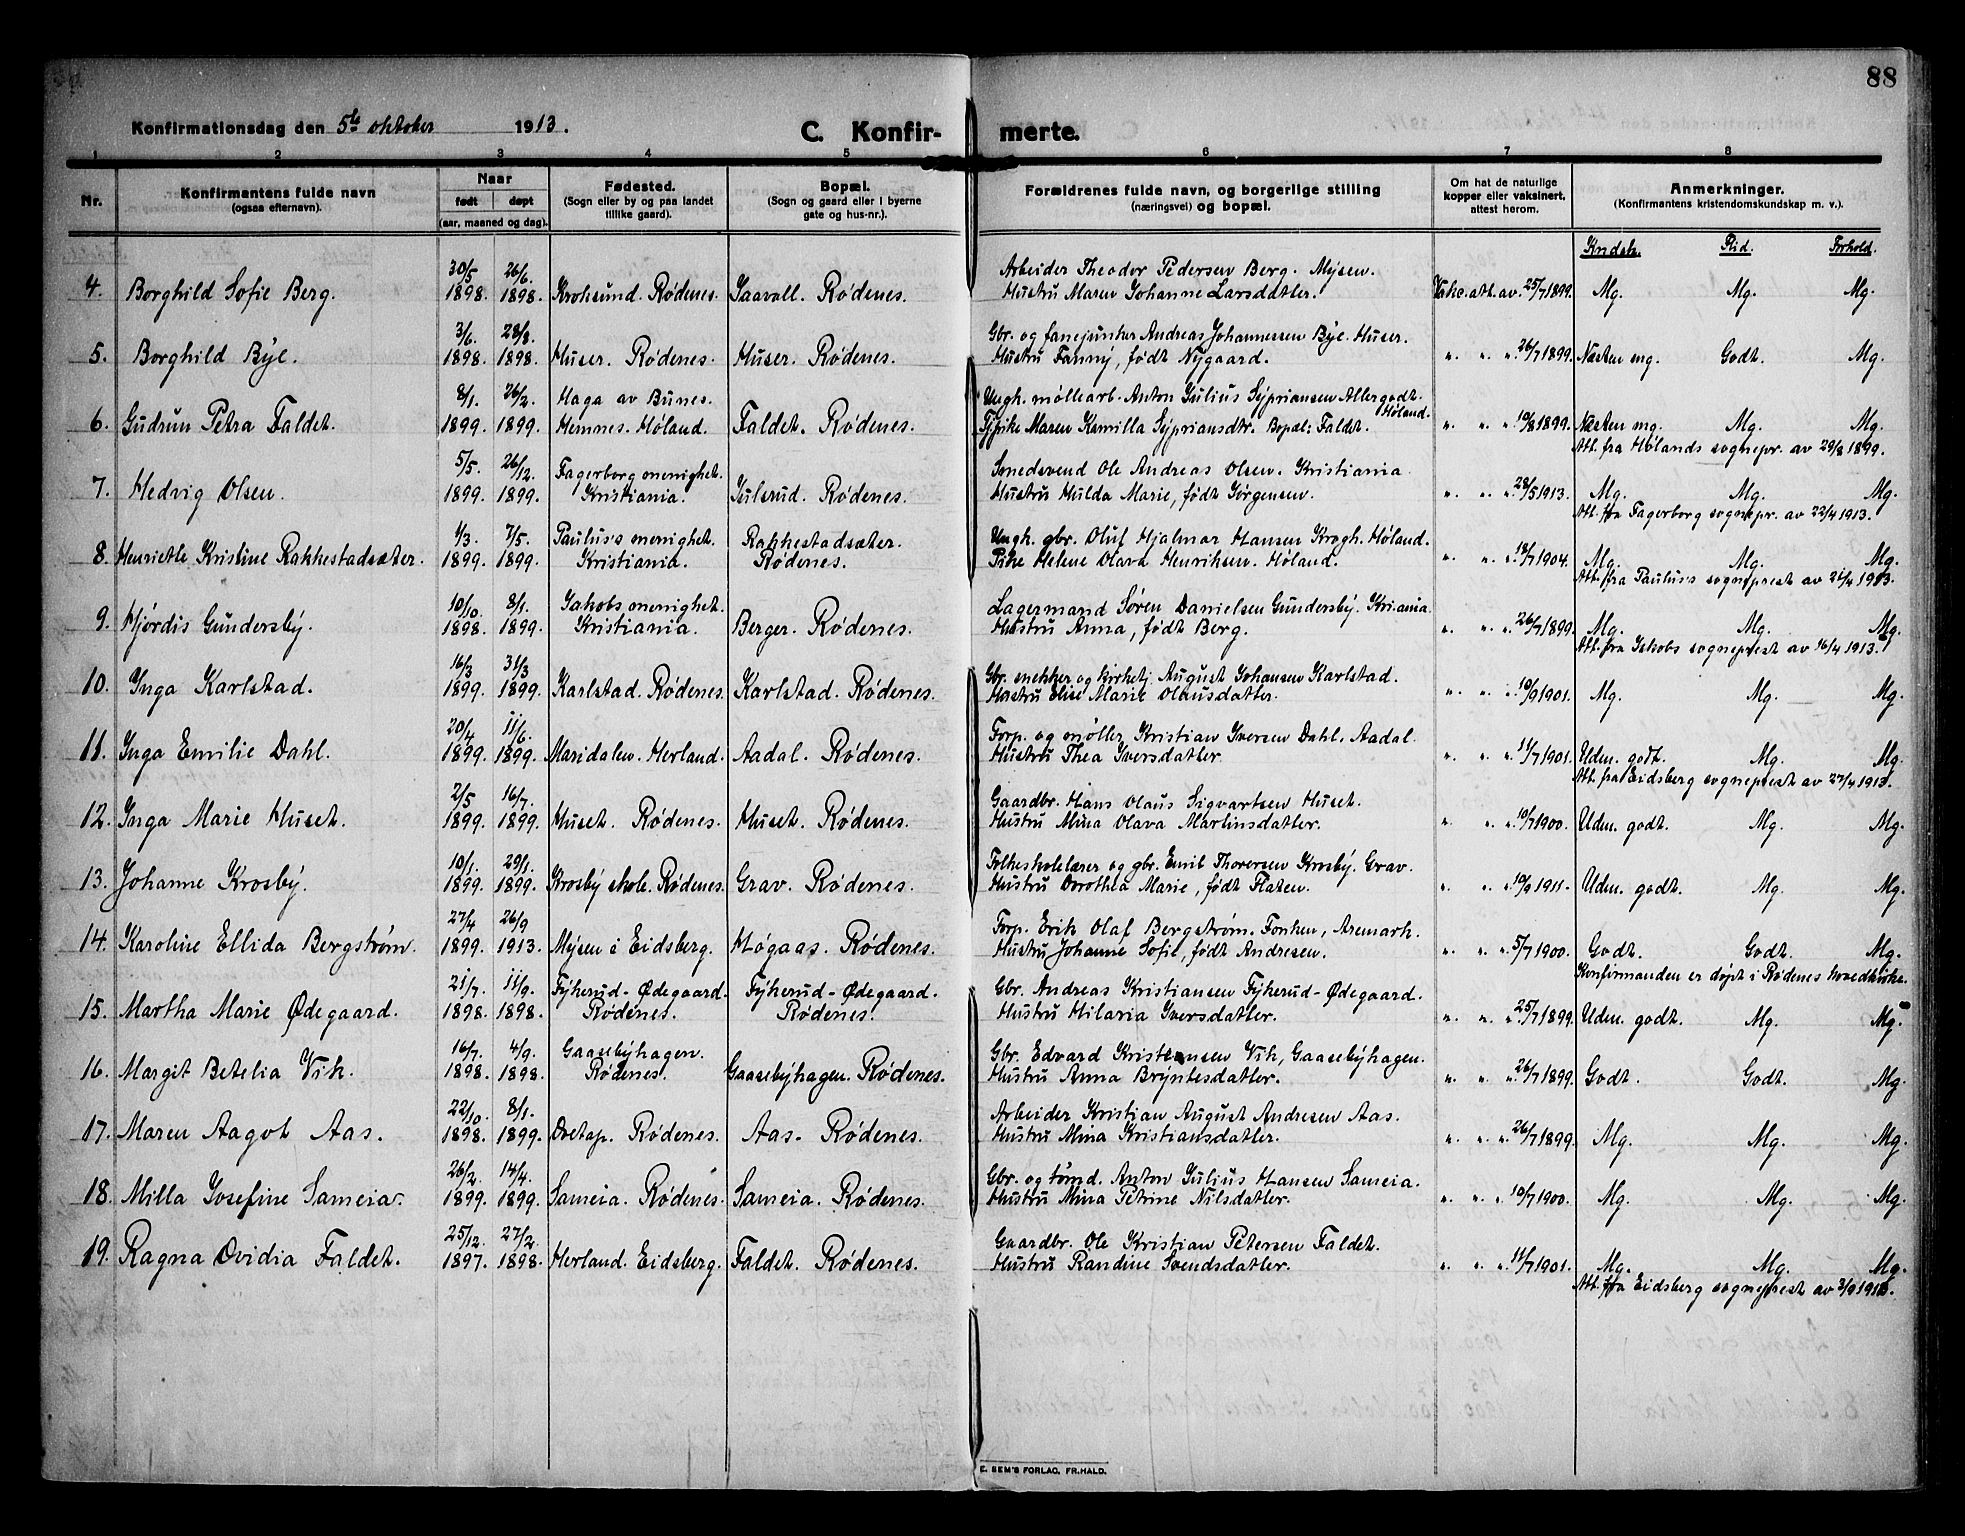 88
Konfirmationsdag den 5te oktober 1913.
C. Konfirmerte.
1 2 3 4 5 6 7 8
Nr.
Konfirmantens fulde navn
(ogsaa efternavn).
Naar
født døpt
(aar, maaned og dag).
Fødested.
(Sogn eller by og paa landet
tillike gaard).
Bopæl.
(Sogn og gaard eller i byerne
gate og hus-nr.).
Forældrenes fulde navn, og borgerlige stilling
(næringsvei) og bopæl.
Om hat de naturlige
kopper eller vaksinert,
attest herom.
Anmerkninger.
(Konfirmantens kristendomskundskap m. v.).
Kndsk. Flid. Forhold.
30/5 26/6 Arbeider Theodor Pedersen Berg. Mysen.
4. Borghild Sofie Berg. 1898. 1898. Kroksund. Rødenes. Taavall. Rødenes. Hustru Maren Johanne Larsddtler. Vakc.att.av. 25/7 1899. Mg. Mg. Mg.
3/6. 28/8. Gbr. og fanejunker Andreas Johannessen Bye. Huser.
5. Borghild Bye. 1898. 1898. Huser. Rødenes. Huser. Rødenes. Hustru Fanny, født Nygaard. " " " 26/7 1899. Næsten mg. Godt. Mg.
8/1. 26/2. Haga av Bunes. Ungk. møllearb. Anton Julius Sypriansen Allergodt.
Høland.
6. Gudrun Petra Faldet. 1899. 1899. Hemnes. Høland. Faldet. Rødenes. Pike Maren Kamilla Sypriansdtr. Bopæl: Faldet. " " " 10/8 1899. Næsten mg. Mg. Mg.
Att. fra Hølands sognepr. av 29/8 1899.
5/5. 26/12. Fagerborg menighet. Smedsvend Ole Andreas Olsen. Kristiania.
7. Hedvig Olsen. 1899. 1899. Kristiania. Julsrud. Rødenes. Hustru Hulda Marie, født Jørgensen. " " " 28/5 1913. Mg. Mg. Mg.
Att. fra Fagerborg sognepr. av 22/4 1913.
4/3. 7/5. Paulus's menighet. Rakkestadsæter. Ungk. gbr. Oluf Hjalmar Hansen Krogh. Høland.
8. Henriette Kristine Rakkestadsæter. 1899. 1899. Kristiania. Rødenes. Pike Helene Olava Henriksen. Høland. " " " 18/7 1904. Mg. Mg. Mg.
Att. fra Paulus's sogneprest av 21/4 1913.
10/10 8/1. Jakobs menighet. Lagermand Søren Danielsen Gundersby. Kr.ania.
9. Hjørdis Gundersby. 1898. 1899. Kristiania. Berger. Rødenes. Hustru Anna, født Berg. " " " 26/7 1899. Mg. Mg. Mg.
Att. fra Jakobs sogneprest av 16/4 1913.
16/3 31/3 Gbr. snekker og kirketj. August Johansen Karlstad.
10. Inga Karlstad. 1899. 1899. Karlstad. Rødenes. Karlstad. Rødenes. Hustru Elise Marie Olausdatter. " " " 10/9 1901. Mg. Mg. Mg.
20/4 11/6. Forp. og møller Kristian Iversen Dahl. Aadal.
11. Inga Emilie Dahl. 1899. 1899. Maridalen. Herland. Aadal. Rødenes. Hustru Thea Iversdatter. " " " 11/7 1901. Uden. godt. Mg. Mg.
Att. fra Eidsberg sogneprest av 27/4 1913.
2/5 16/7. Gaardbr. Hans Olaus Sigvartsen Huset.
12. Inga Marie Huset. 1899. 1899. Huset. Rødenes. Huset. Rødenes. Hustru Mina Olava Martinsdatter. " " " 10/7 1900. Uden. godt. Mg. Mg.
10/1. 29/1. Folkeskolelærer og gbr. Emil Thoresen Krosby. Grav.
13. Johanne Krosby. 1899. 1899. Krosby skole. Rødenes. Grav. Rødenes. Hustru Dorothea Marie, født Flaten. " " " 10/9 1911. Uden. godt. Mg. Mg.
27/4 26/9 Forp. Erik Olaf Bergstrøm. Fonken, Aremark.
14. Karoline Ellida Bergstrøm. 1899. 1913. Mysen i Eidsberg. Høgaas. Rødenes. Hustru Johanne Sofie, født Andresen. " " " 5/7 1900. Godt. Godt. Mg.
Konfirmanden er døpt i Rødenes hovedkirke.
21/7. 11/9. Fykerud-Ødegaard. Fykerud-Ødegaard. Gbr. Andreas Kristiansen Fykerud-Ødegaard.
15. Martha Marie Ødegaard. 1898. 1898. Rødenes. Rødenes. Hustru Hilaria Iversdatter. " " " 25/7 1899. Uden. godt. Mg. Mg.
16/7. 4/9. Gaasebyhagen. Gbr. Edvard Kristensen Vik, Gaasebyhagen.
16. Margit Betelia Vik. 1898. 1898. Rødenes. Gaasebyhagen. Rødenes. Hustru Anna Bryntesdatter. " " " 26/7 1899. Godt. Godt. Mg.
22/10. 8/1. Arbeider Kristian August Andresen Aas.
17. Maren Aagot Aas. 1898. 1899. Oretap. Rødenes. Aas. Rødenes. Hustru Mina Kristiansdatter. " " " 26/7 1899. Mg. Mg. Mg.
26/2. 14/4. Gbr. og tømd. Anton Julius Hansen Sameia.
18. Milla Josefine Sameia. 1899. 1899. Sameia. Rødenes. Sameia. Rødenes. Hustru Mina Petrine Nilsdatter. " " " 10/7 1900. Mg. Mg. Mg.
25/12. 27/2. Gaardbr. Ole Kristian Petersen Faldet.
19. Ragna Ovidia Faldet. 1897. 1898. Herland. Eidsberg. Faldet. Rødenes. Hustru Randine Svendsdatter. " " " 11/7 1901. Mg. Mg. Mg.
Att. fra Eidsberg sogneprest av 3/9 1913.
E. SEM'S FORLAG, FR.HALD.